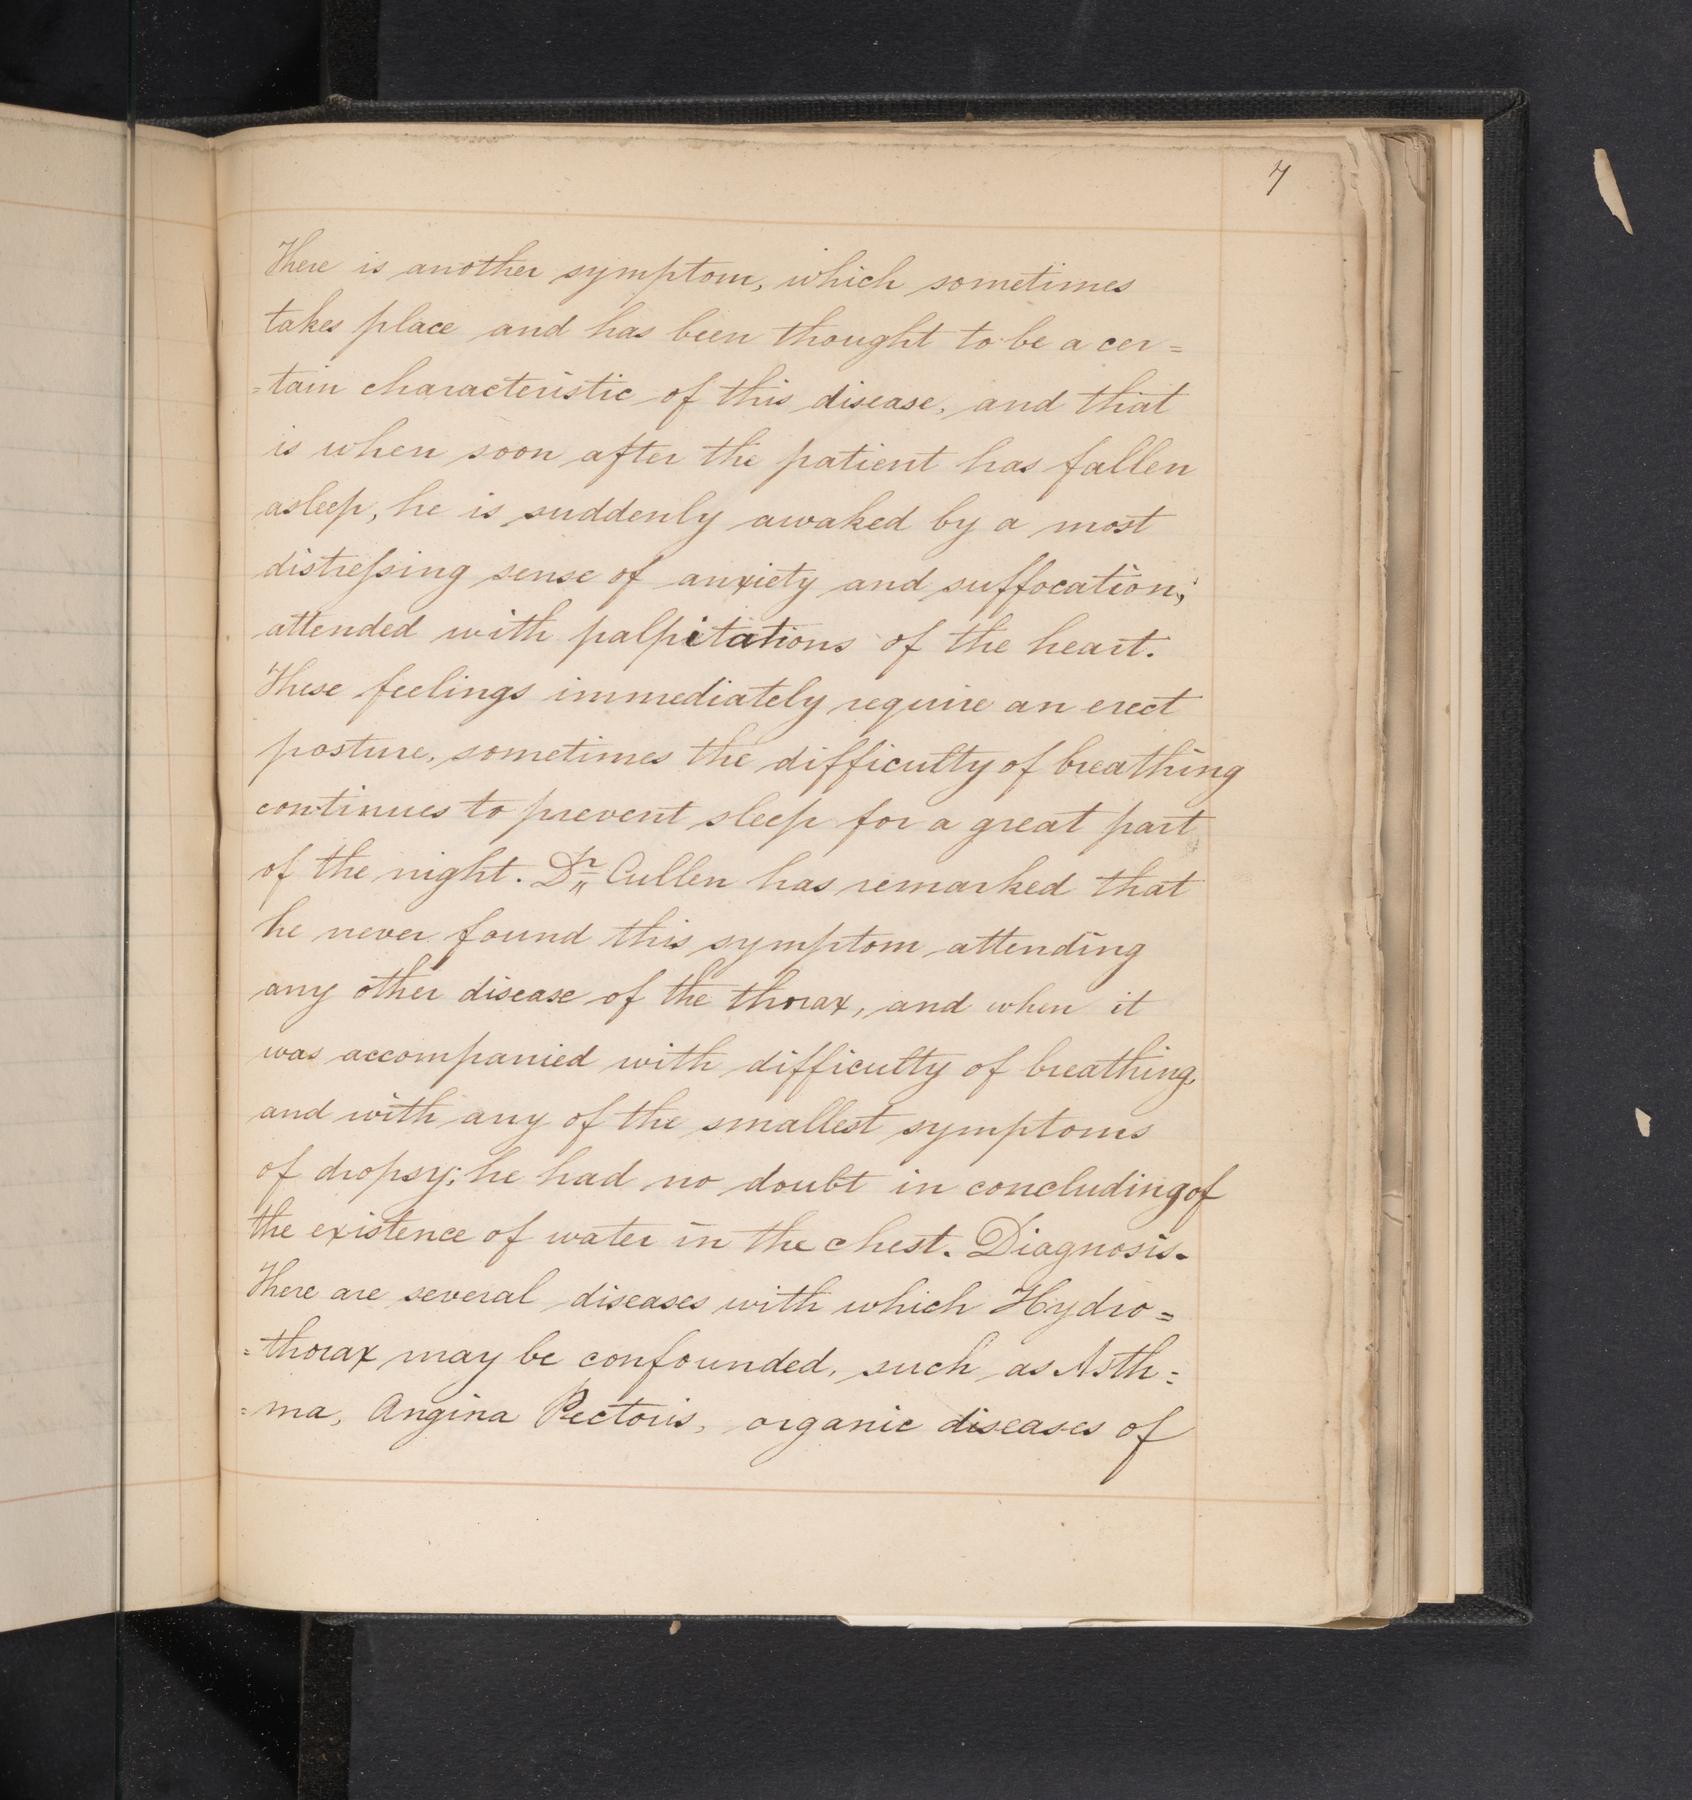 7
There is another symptom, which sometimes
takes place and has been thought to be a cer=
=tain characteristic of this disease, and that
is when soon after the patient has fallen
asleep, he is suddenly awaked by a most
distreſsing sense of anxiety and suffocation;
attended with palpitations of the heart.
These feelings immediately require an erect
posture, sometimes the difficulty of breathing
continues to prevent sleep for a great part
of the night. Dr. Cullen has remarked that
he never found this symptom attending
any other disease of the thorax, and when it
was accompanied with difficulty of breathing,
and with any of the smallest symptoms
of dropsy; he had no doubt in concluding of
the existence of water in the chest. Diagnosis.
There are several diseases with which Hydro=
=thorax may be confounded, such as Asth=
=ma, Angina Pectoris, organic diseases of